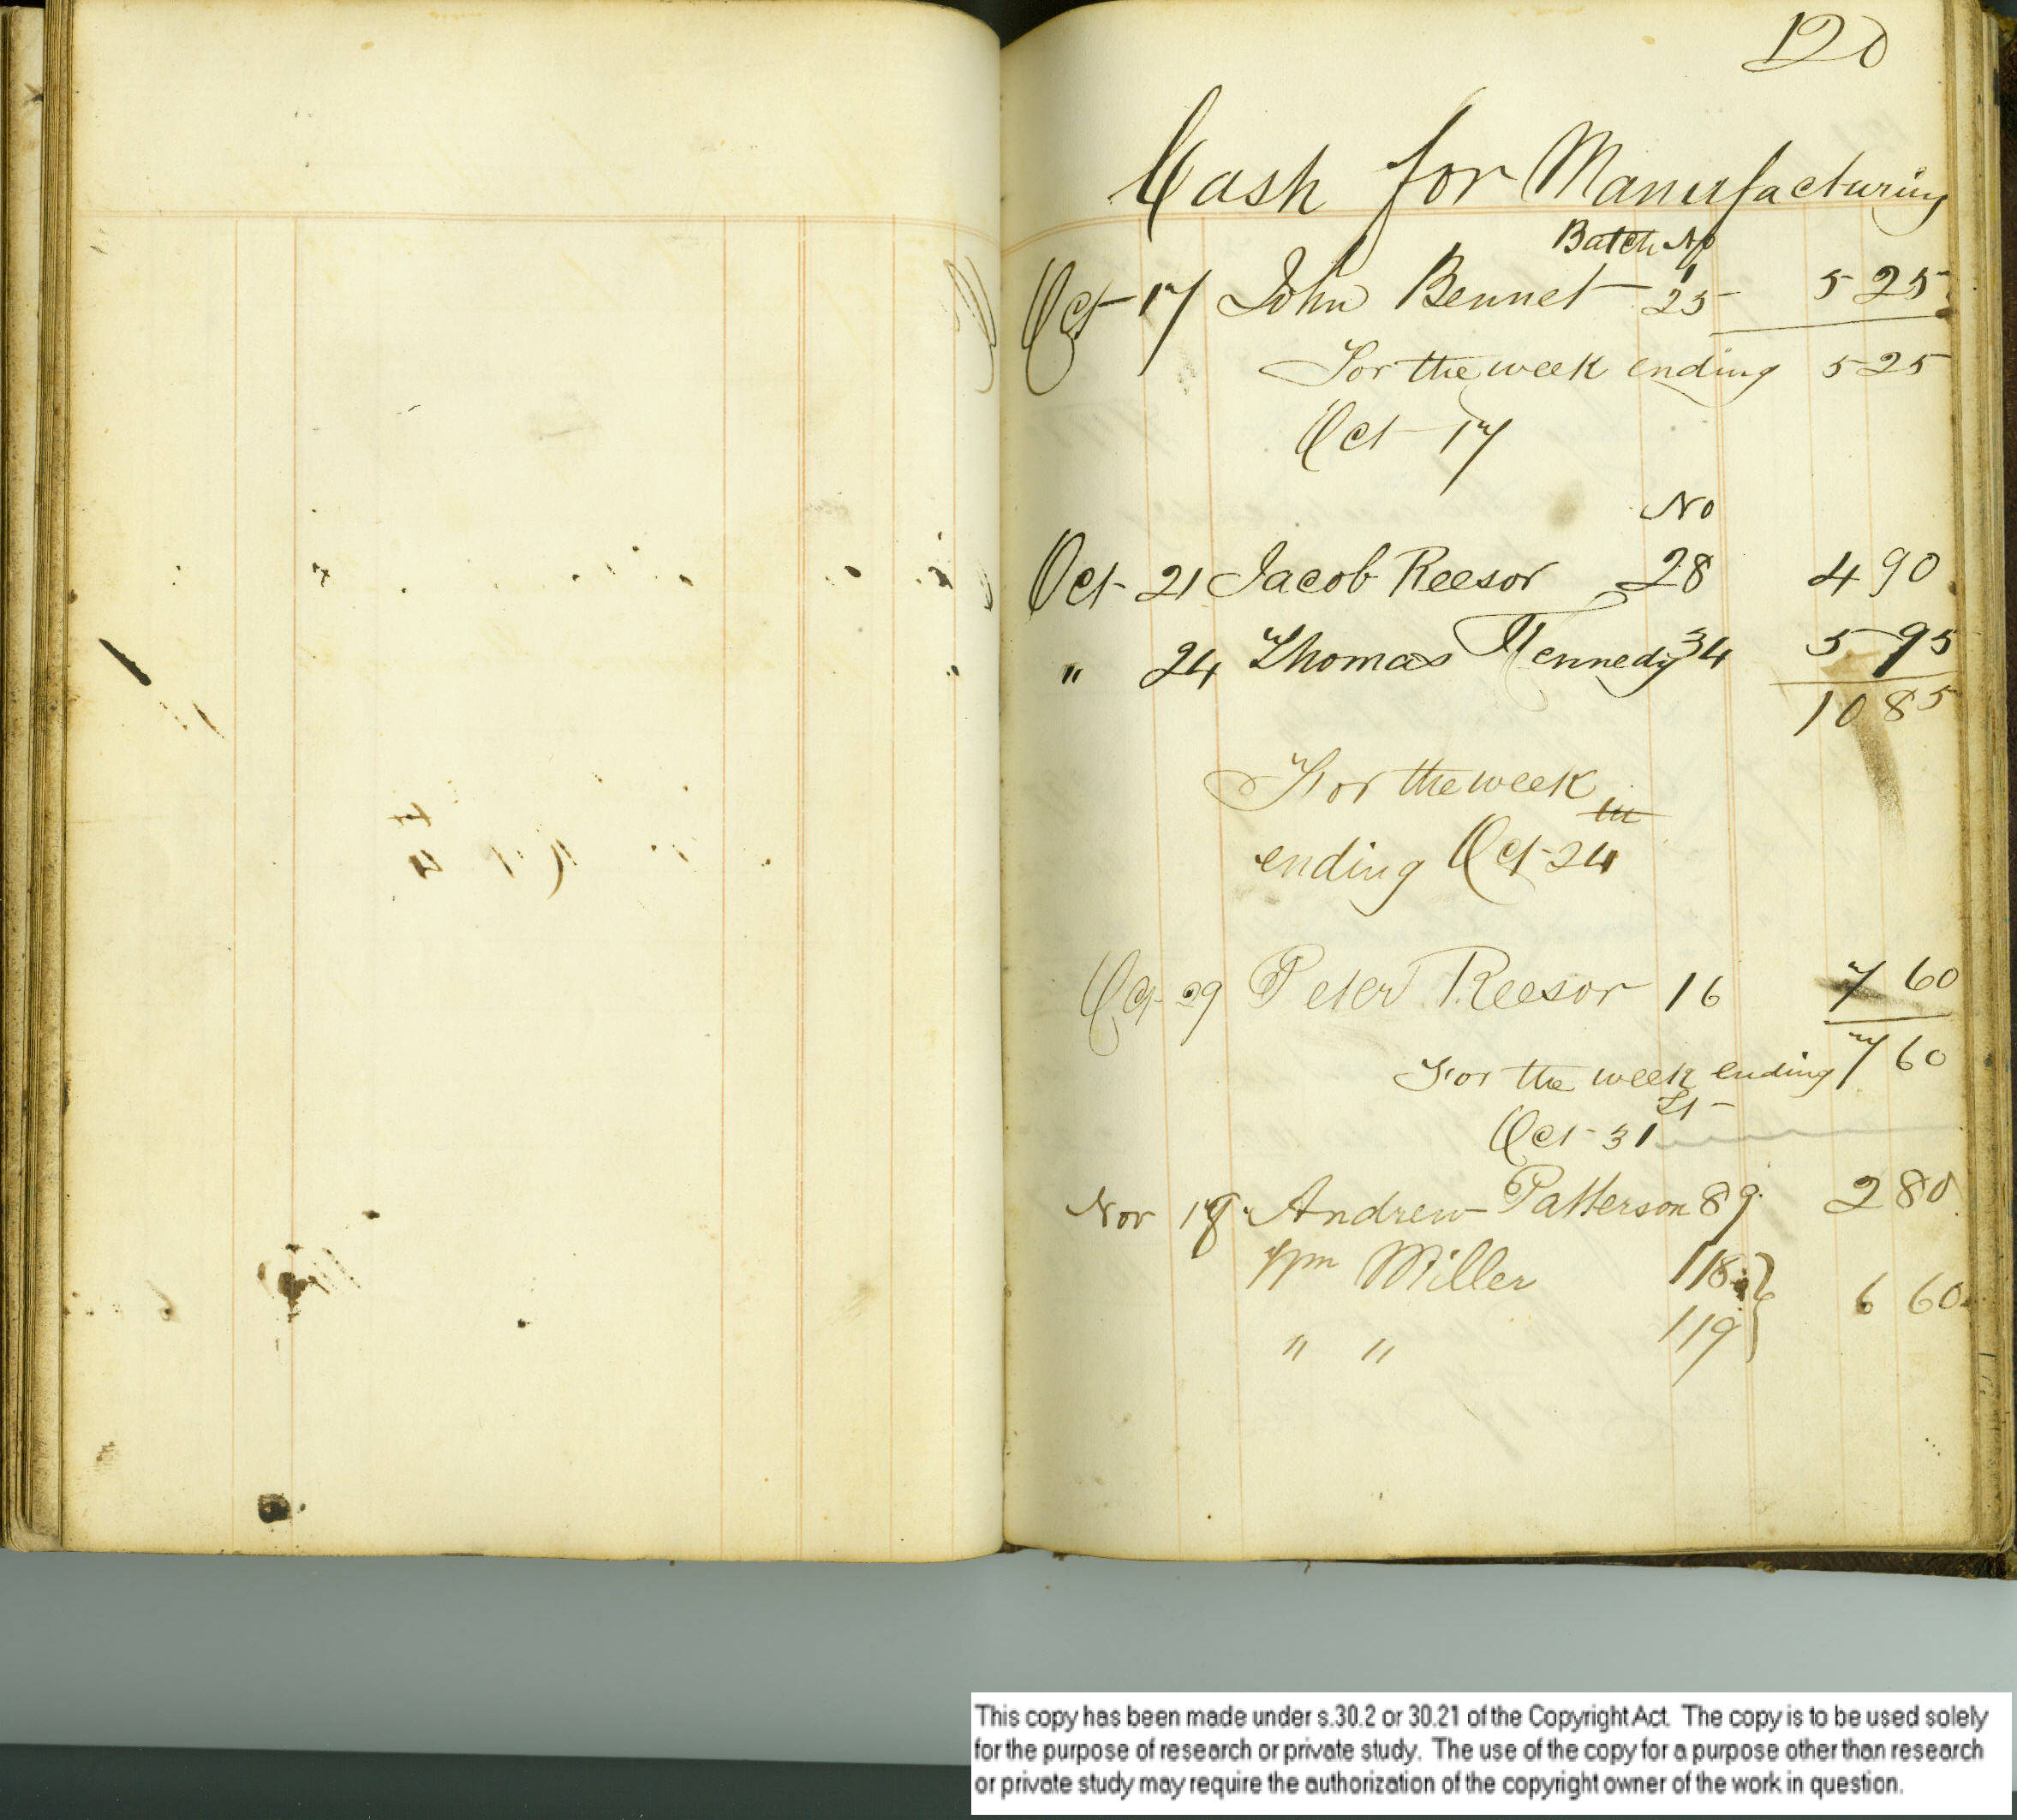 120
Cash for Manufacturing
Batch No
Oct 17 John Bennet 25 5 25
For the week ending 5 25
Oct 17
No
Oct 21 Jacob Reesor 28 4 90
" 24 Thomas Kennedy 34 5 95
10 85
For the week
ending Oct 24th
Oct 29 Peter Reesor 16 7 60
For the week ending 7 60
Oct 31st
Nov 18 Andrew Patterson 89 2 80
Wm Miller 118 } 6 60
" " 119
This copy has been made under s.30.2 or 30.21 of the Copyright Act. The copy is to be used solely
for the purpose of research or private study. The use of the copy for a purpose other than research
or private study may require the authorization of the copyright owner of the work in question.